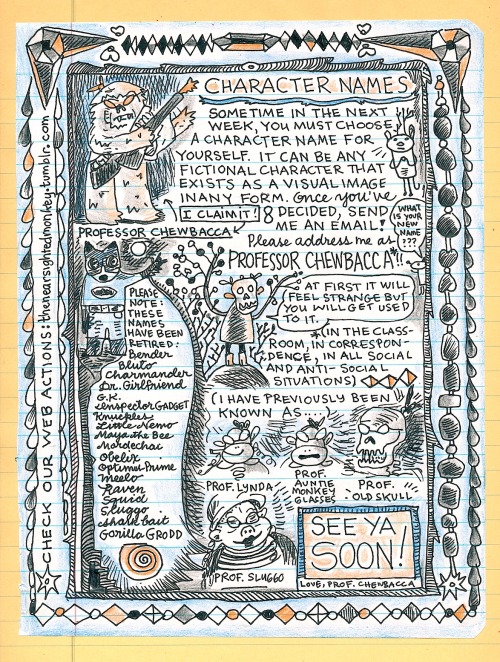 CHARACTER NAMES
SOMETIME IN THE NEXT
WEEK, YOU MUST CHOOSE
A CHARACTER NAME FOR
YOURSELF. IT CAN BE ANY
FICTIONAL CHARACTER THAT
EXISTS AS A VISUAL IMAGE
IN ANY FORM. Once you've
DECIDED, SEND
ME AN EMAIL!
I CLAIM IT!
PROFESSOR CHEWBACCA
Please address me as
PROFESSOR CHEWBACCA!!
WHAT
IS YOUR
NEW
NAME
???
AT FIRST IT WILL
FEEL STRANGE BUT
YOU WILL GET USED
TO IT.
*(IN THE CLASS-
ROOM, IN CORRESPON-
DENCE, IN ALL SOCIAL
AND ANTI-SOCIAL
SITUATIONS)
PLEASE
NOTE:
THESE
NAMES
HAVE BEEN
RETIRED:
Bender
Bluto
Charmander
Dr. Girlfriend
G.K.
Inspector GADGET
Knuckles
Little Nemo
Maya the Bee
Mordechai
Obelix
Optimus Prime
Meelo
Raven
Squid
Sluggo
Shake bait
Gorilla GRODD
(I HAVE PREVIOUSLY BEEN
KNOWN AS...)
PROF. LYNDA
PROF.
AUNTIE
MONKEY
GLASSES
PROF.
OLD SKULL
PROF. SLUGGO
SEE YA
SOON!
LOVE, PROF. CHEWBACCA
CHECK OUR WEB ACTIONS: thenearsightedmonkey.tumblr.com